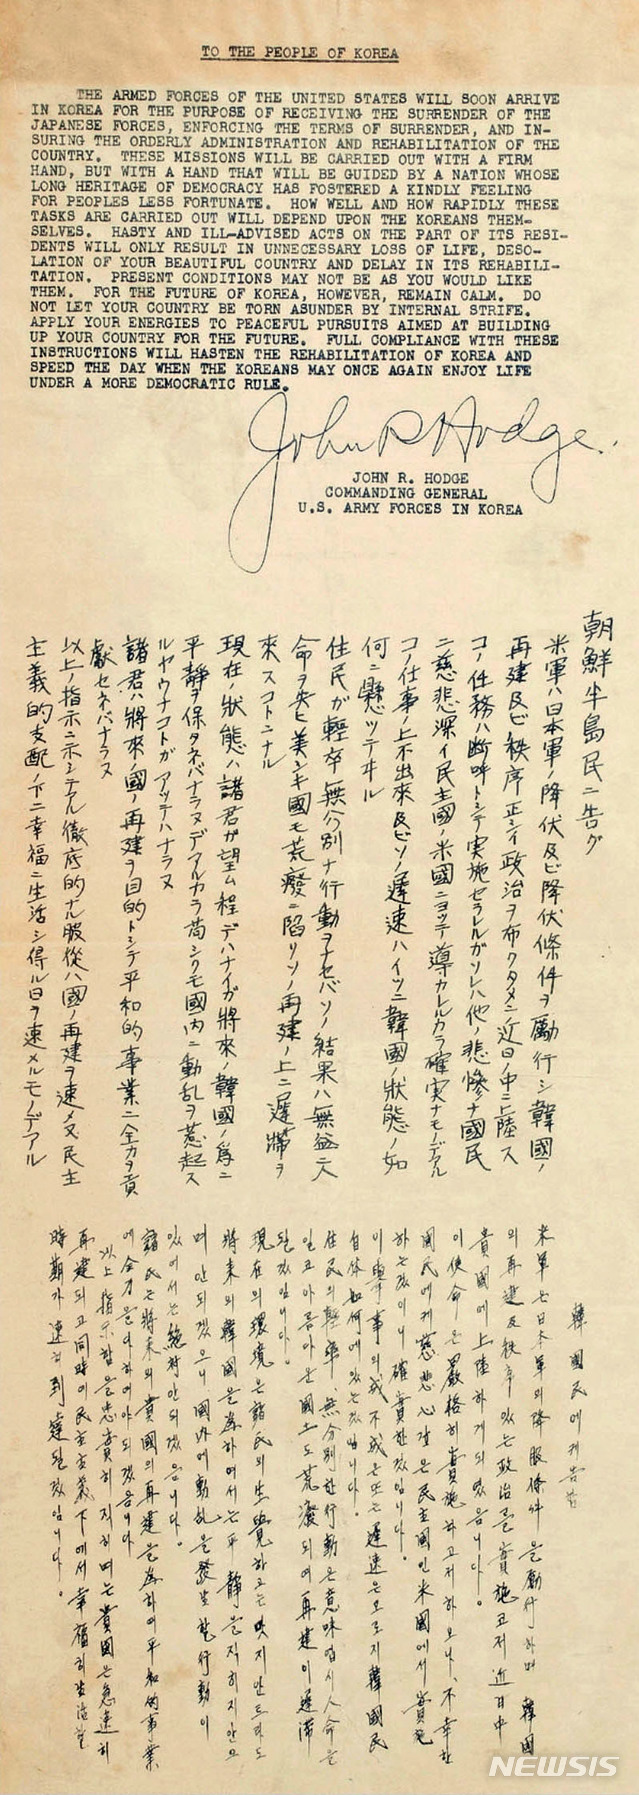 TO THE PEOPLE OF KOREA
THE ARMED FORCES OF THE UNITED STATES WILL SOON ARRIVE
IN KOREA FOR THE PURPOSE OF RECEIVING THE SURRENDER OF THE
JAPANESE FORCES, ENFORCING THE TERMS OF SURRENDER, AND IN-
SURING THE ORDERLY ADMINISTRATION AND REHABILITATION OF THE
COUNTRY. THESE MISSIONS WILL BE CARRIED OUT WITH A FIRM
HAND, BUT WITH A HAND THAT WILL BE GUIDED BY A NATION WHOSE
LONG HERITAGE OF DEMOCRACY HAS FOSTERED A KINDLY FEELING
FOR PEOPLES LESS FORTUNATE. HOW WELL AND HOW RAPIDLY THESE
TASKS ARE CARRIED OUT WILL DEPEND UPON THE KOREANS THEM-
SELVES. HASTY AND ILL-ADVISED ACTS ON THE PART OF ITS RESI-
DENTS WILL ONLY RESULT IN UNNECESSARY LOSS OF LIFE, DESO-
LATION OF YOUR BEAUTIFUL COUNTRY AND DELAY IN ITS REHABILI-
TATION. PRESENT CONDITIONS MAY NOT BE AS YOU WOULD LIKE
THEM. FOR THE FUTURE OF KOREA, HOWEVER, REMAIN CALM. DO
NOT LET YOUR COUNTRY BE TORN ASUNDER BY INTERNAL STRIFE.
APPLY YOUR ENERGIES TO PEACEFUL PURSUITS AIMED AT BUILDING
UP YOUR COUNTRY FOR THE FUTURE. FULL COMPLIANCE WITH THESE
INSTRUCTIONS WILL HASTEN THE REHABILITATION OF KOREA AND
SPEED THE DAY WHEN THE KOREANS MAY ONCE AGAIN ENJOY LIFE
UNDER A MORE DEMOCRATIC RULE.
John R Hodge.
JOHN R. HODGE
COMMANDING GENERAL
U.S. ARMY FORCES IN KOREA
朝鮮半島民ニ告グ
米軍ハ日本軍ノ降伏及ビ降伏條件ヲ勵行シ韓國ノ
再建及ビ秩序正シイ政治ヲ布クタメニ近日ノ中ニ上陸ス
コノ任務ハ断呼トシテ実施セラレルガソレハ他ノ悲慘ナ國民
ニ慈悲深イ民主國ノ米國ニヨッテ導カレルカラ確実ナモノデアル
コノ仕事ノ上不出來及ビソノ遲速ハイツニ韓國ノ狀態ノ如
何ニ懸ツテヰル
住民ガ輕卒無分別ナ行動ヲナセバソノ結果ハ無益ニ人
命ヲ失ヒ美シキ國モ荒廢ニ陷リソノ再建ノ上ニ遲滯ヲ
來スコトニナル
現在ノ狀態ハ諸君ガ望ム程デハナイガ將來ノ韓國ノ爲ニ
平靜ヲ保タネバナラヌデアルカラ苟シクモ國内ニ動乱ヲ惹起ス
ルヤウナコトガアッテハナラヌ
諸君ハ將來國ノ再建ヲ目的トシテ平和的事業ニ全力ヲ貢
獻セネバナラヌ
以上ノ指示ニ示シテアル徹底的ナル服從ハ國ノ再建ヲ速メ又民主
主義的支配ノ下ニ幸福ニ生活シ得ル日ヲ速メルモノデアル
韓國民에게告함
米軍은日本軍의降服條件을勵行하며韓國
의再建及秩序있는政治를實施코저近日中
貴國에上陸하게되겠읍니다。
이使命은嚴格히實施하고저하오나、不幸한
國民에게慈悲心깊은民主國인米國에서實施
하는것이니確實한것입니다。
自体如何에있는것입니다。
住民의輕率、無分別한行動은意味없시人命을
일코아름다운國土도荒廢되며再建이遲滯
될것입니다。
現在의環境은諸民의生覺하고는맛지안트라도
將來의韓國을爲하여서는平靜을직히지안으
며안되겠으니國內에動乱을發生할行動이
있어서는絶対안되겠읍니다。
諸民은將來의貴國의再建을爲하여平和的事業
에全力을다하여야되겠읍니다
以上指示함을忠實히직히며는貴國은急速히
再建되고同時에民主主義下에서幸福히生活할
時期가速히到達될것입니다。
NEWSIS